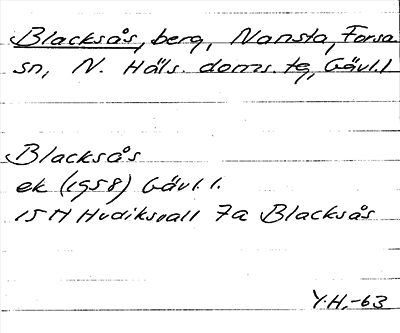 Blacksås, berg, Nansta, Forsa
sn, N. Häls. doms. tg, Gävl. l
Blacksås
ek (1958) Gävl. l.
15 H Hudiksvall 7a Blacksås
Y.H,-63